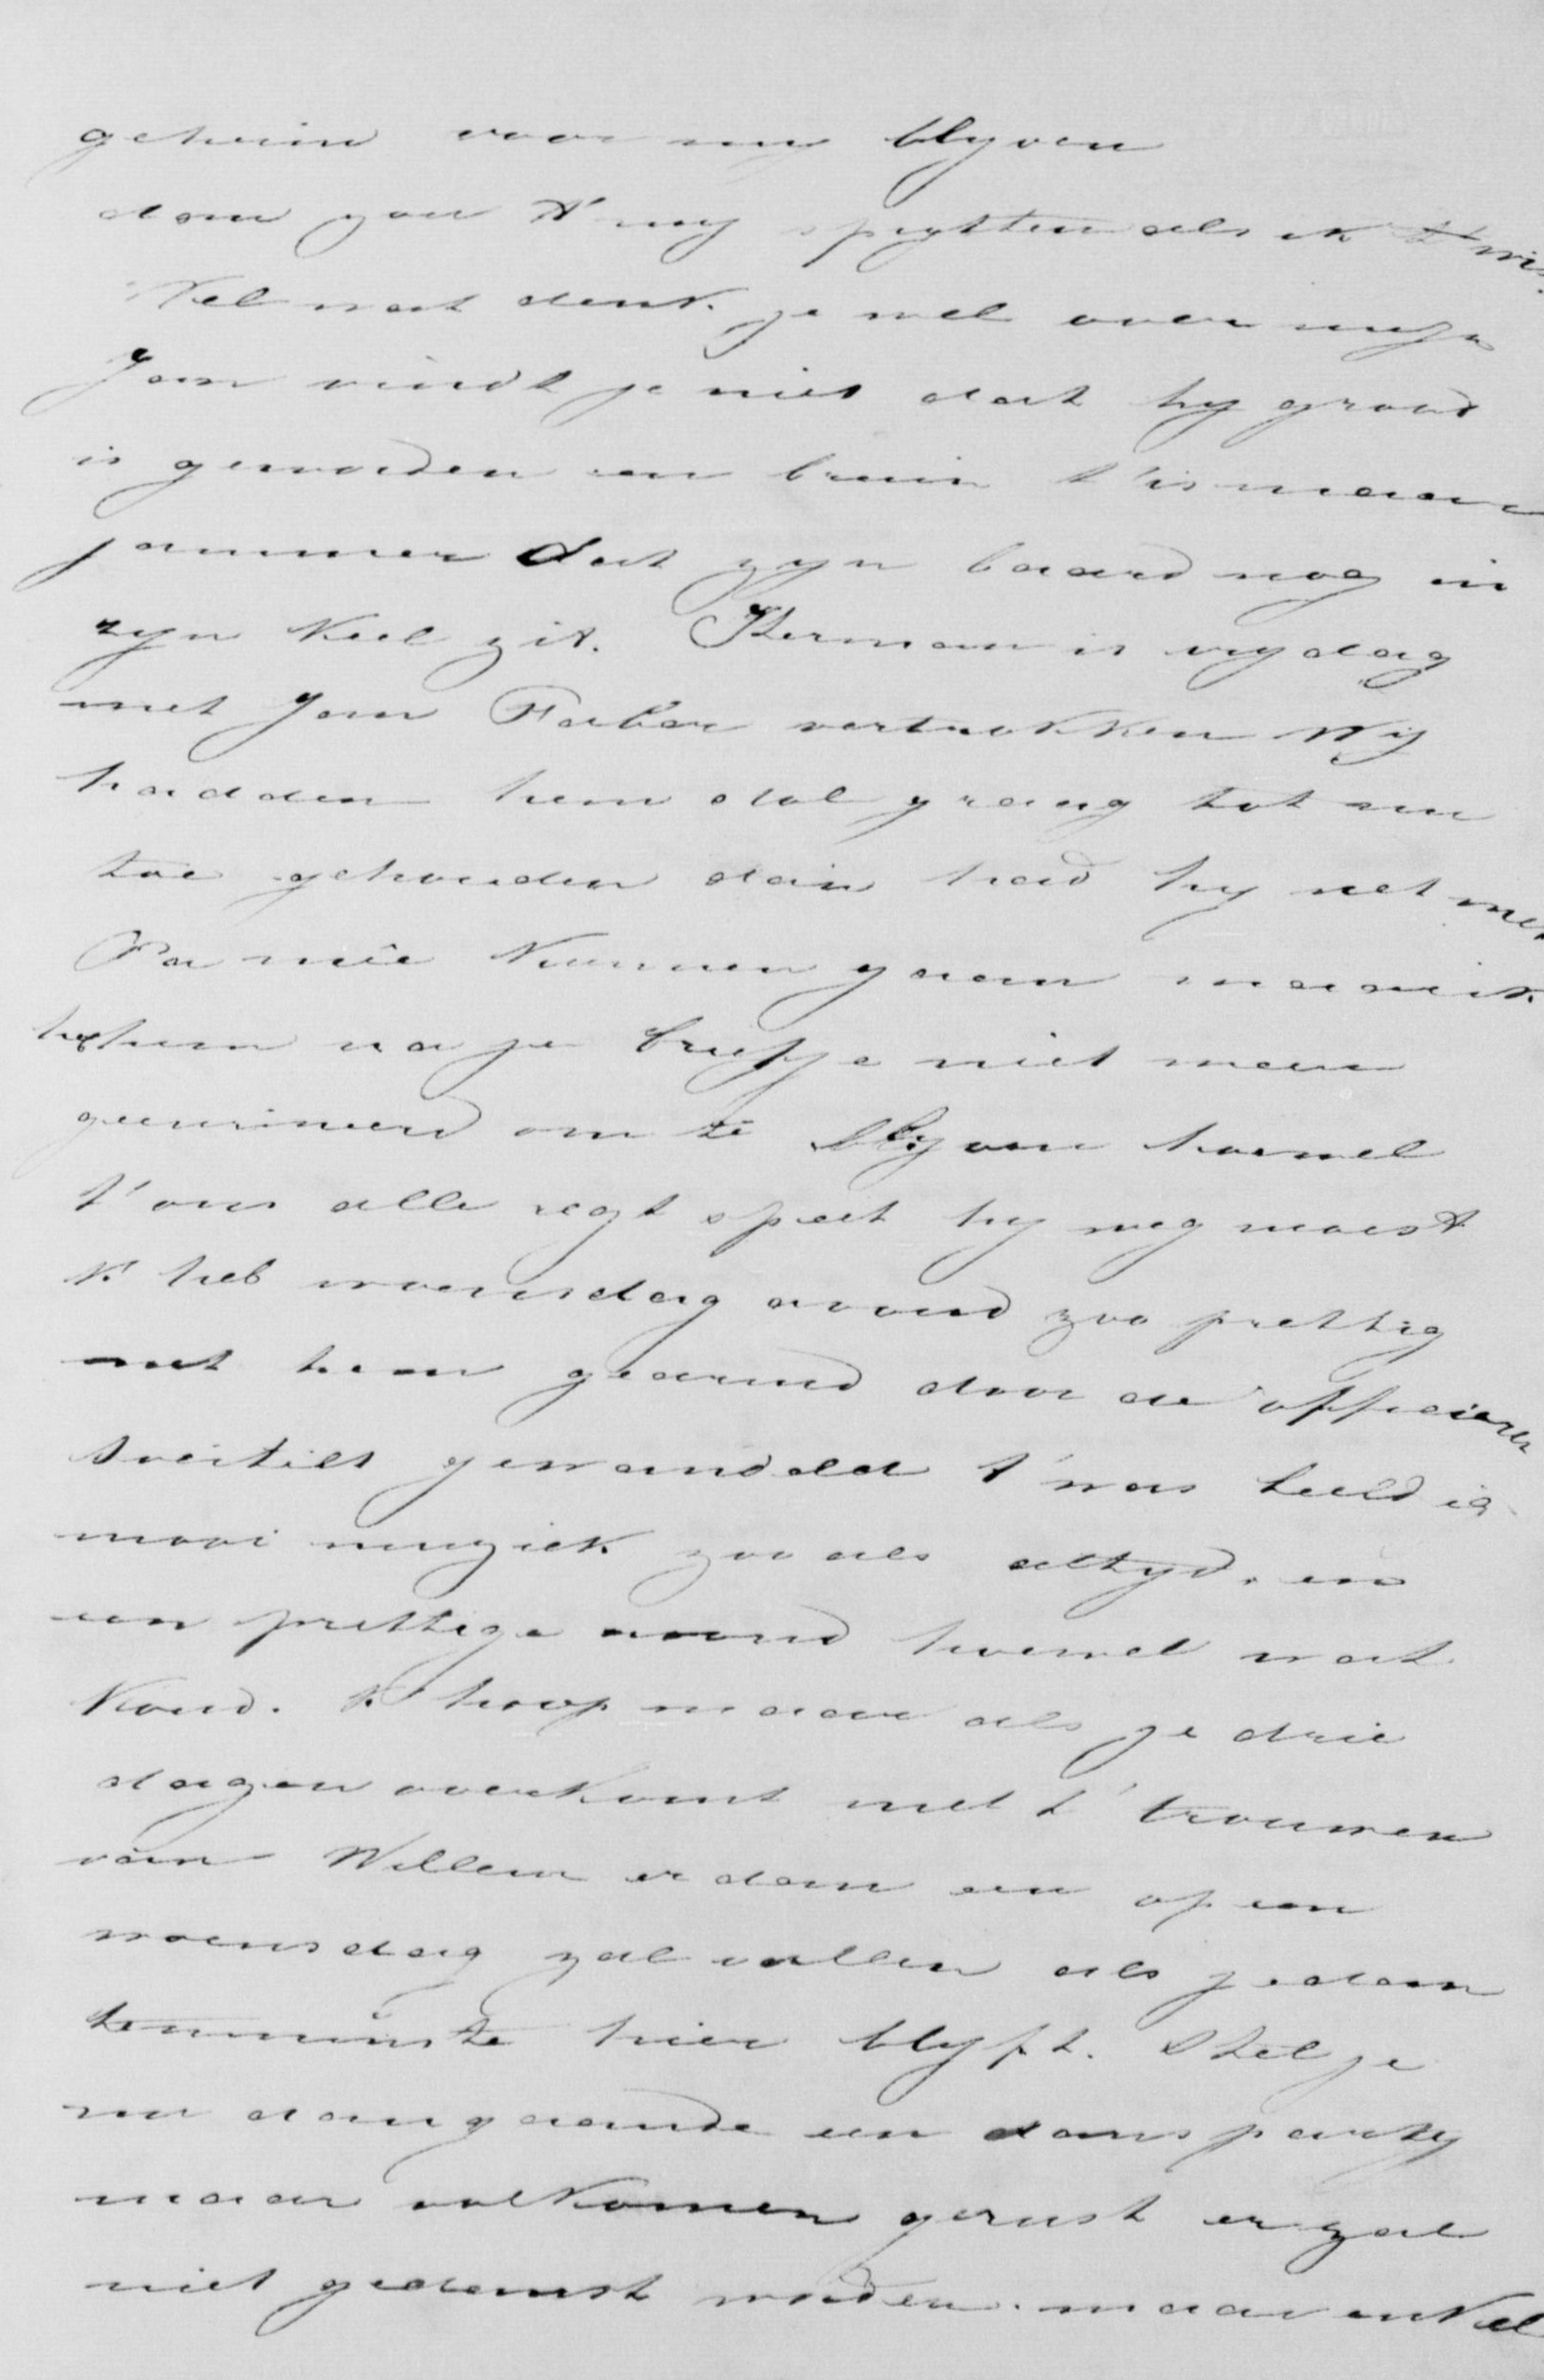 geheim voor my blyven
dan zou t' my spytten als ik t' wis
Nel wat denk je wel over myn
Jan vindt je niet dat hy groot
is geworden en bruin t' is maar
jammer dat zyn baard nog in
zyn keel zit. Herman is vrydag
met Jan Faber vertrokken wy
hadden hem dol graag tot nu
toe gehouden dan had hy net met
Pa meê kunnen gaan maar ik
heb hem na je briefje niet meer
geanimeerd om te blyven hoewel
t' ons alle regt speet hy weg moest
k' heb woensdag avond zoo prettig
met hem gearmd door de officieren
sociteit gewandeld t' was beeldig
mooi muziek zoo als altyd. en
een prettige avond hoewel wat
koud. k' hoop maar als je drie
dagen overkomt met t' trouwen
van Willem er dan een op een
woensdag zal vallen als je dan
tenminste hier blyft. Stel je
nu aangaande een danspartij
maar volkomen gerust er zal
niet gedanst worden. maar enkel